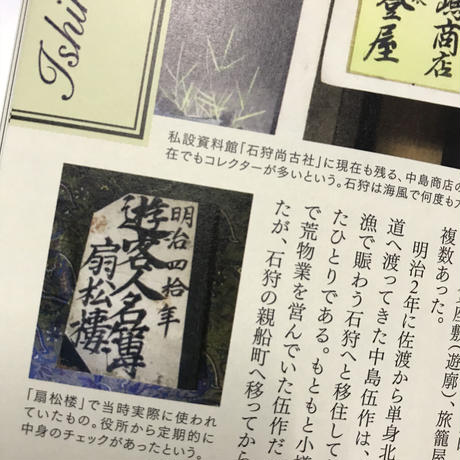 Ishi
嶋商店
登屋
私設資料館「石狩尚古社」に現在も残る、中島商店の
在でもコレクターが多いという。石狩は海風で何度も
座敷(遊廓)、旅籠屋
複数あった。
明治2年に佐渡から単身北
道へ渡ってきた中島伍作は、
漁で賑わう石狩へと移住して
たひとりである。もともと小樽
で荒物業を営んでいた伍作だ
たが、石狩の親船町へ移ってから
明治四拾年
遊客人名簿
扇松樓
「扇松楼」で当時実際に使われ
ていたもの。役所から定期的に
中身のチェックがあったという。